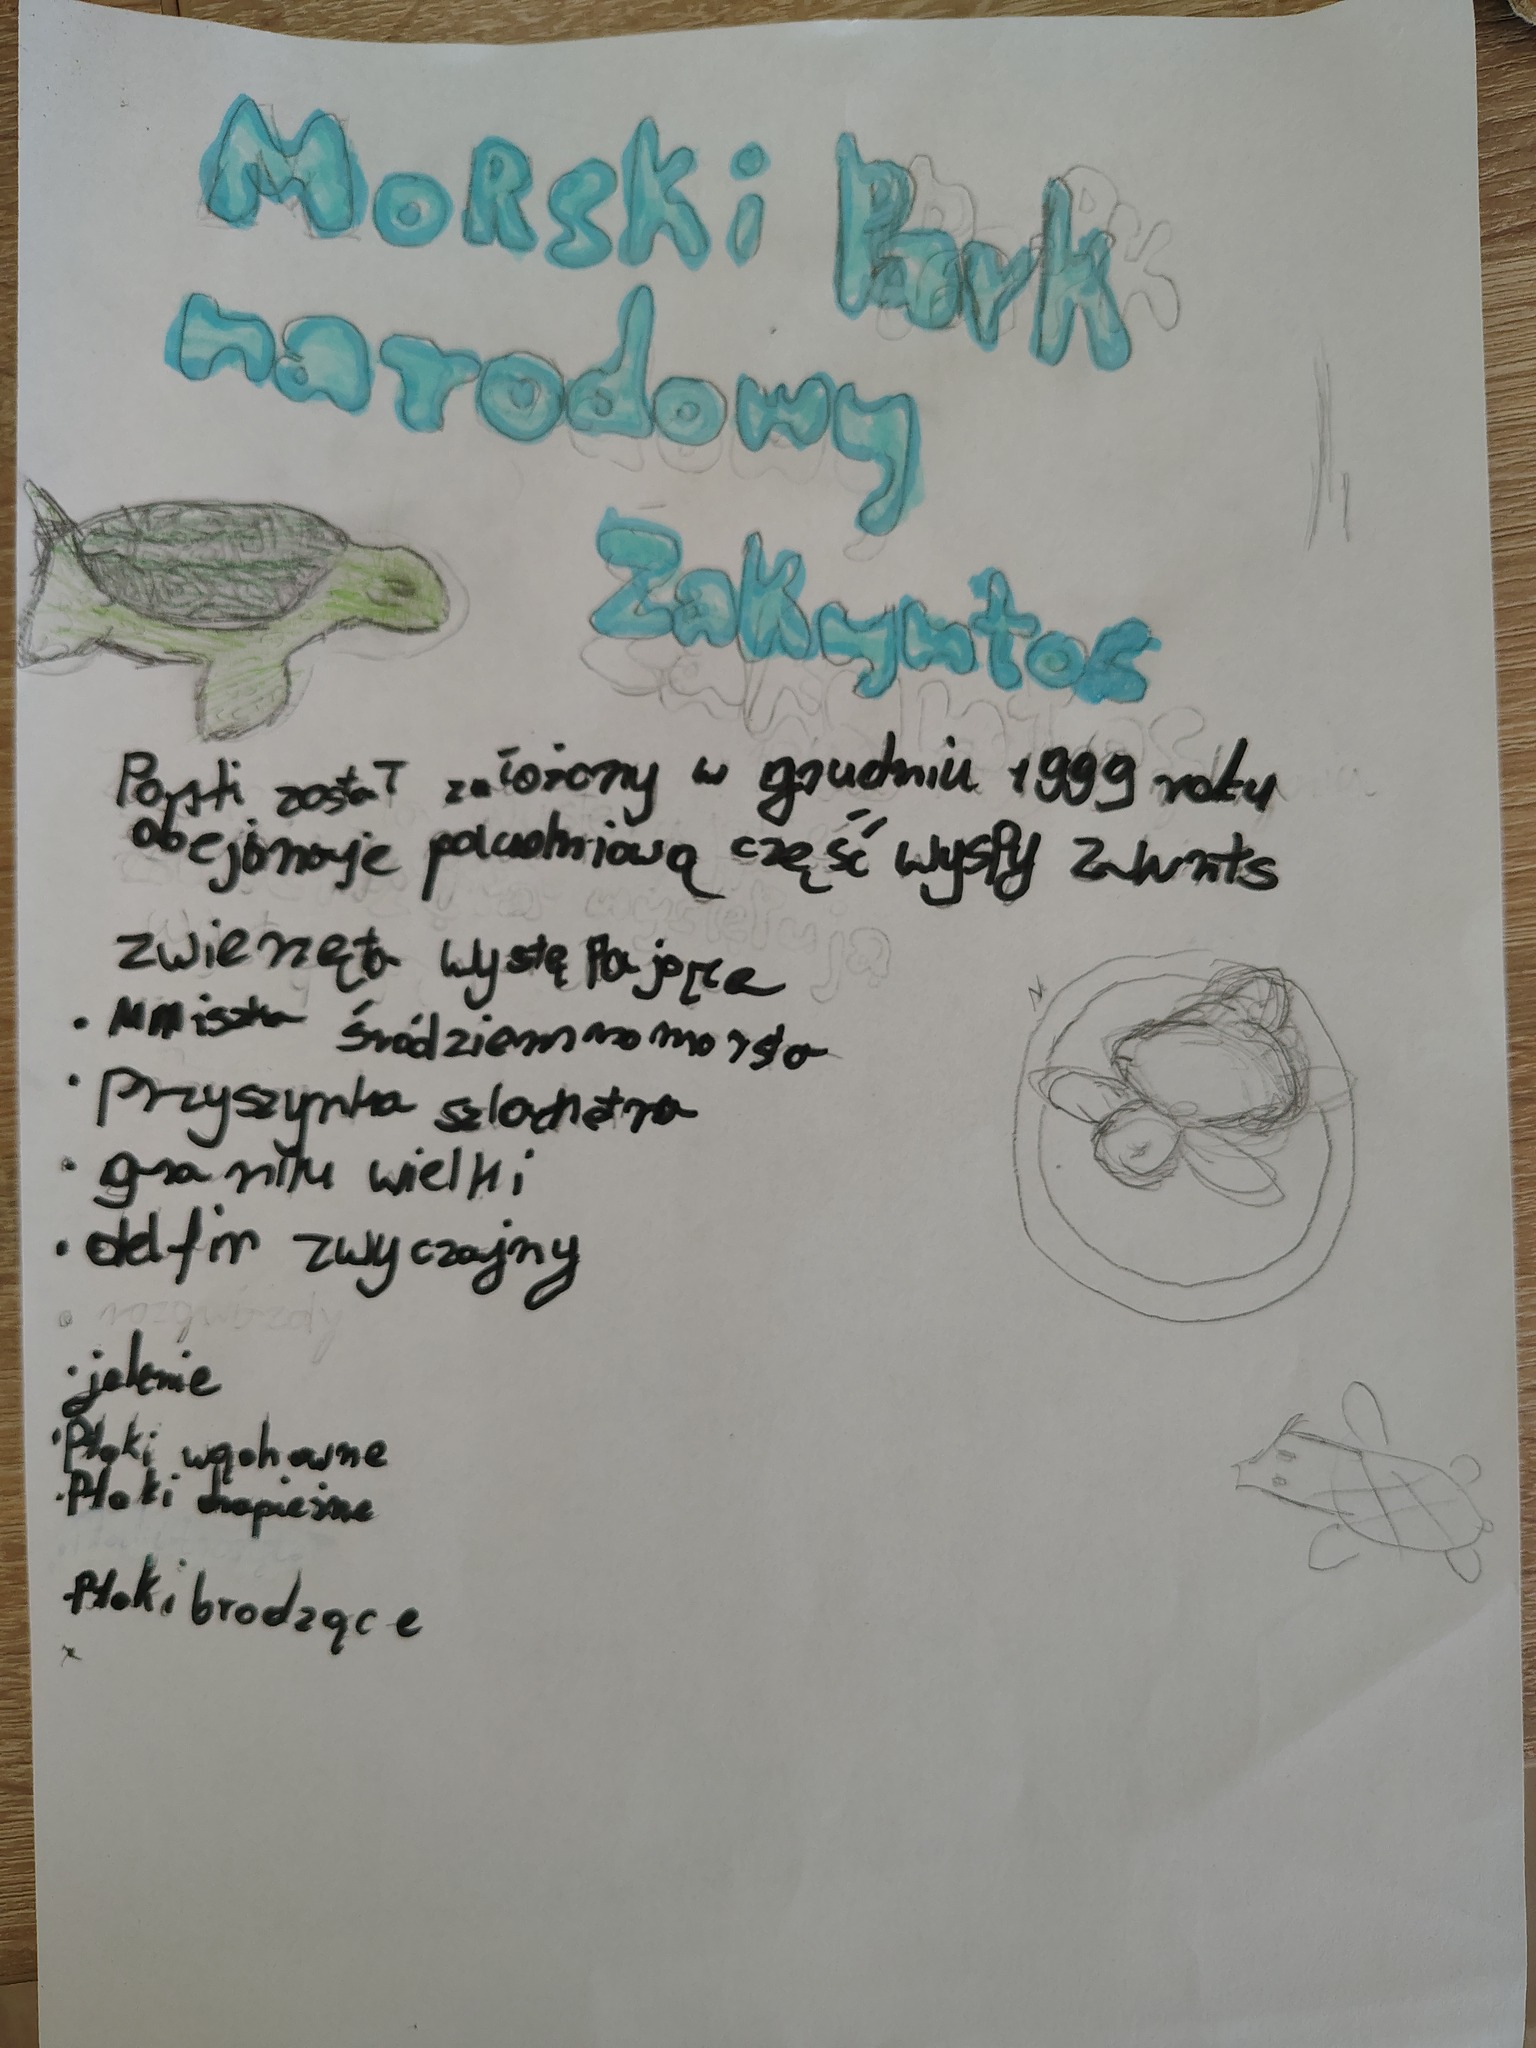 Morski Park
narodowy
Zakyntos
Park został założony w grudniu 1999 roku
obejomoje połudmiową część wyspy
zwierzęta występające
• Mniszka śródziemnomorska
• Przyszynka szlachetna
• wielki
• delfin zwyczajny
• jelenie
• Ptaki wędrowne
• Ptaki drapieżne
Ptaki brodzące